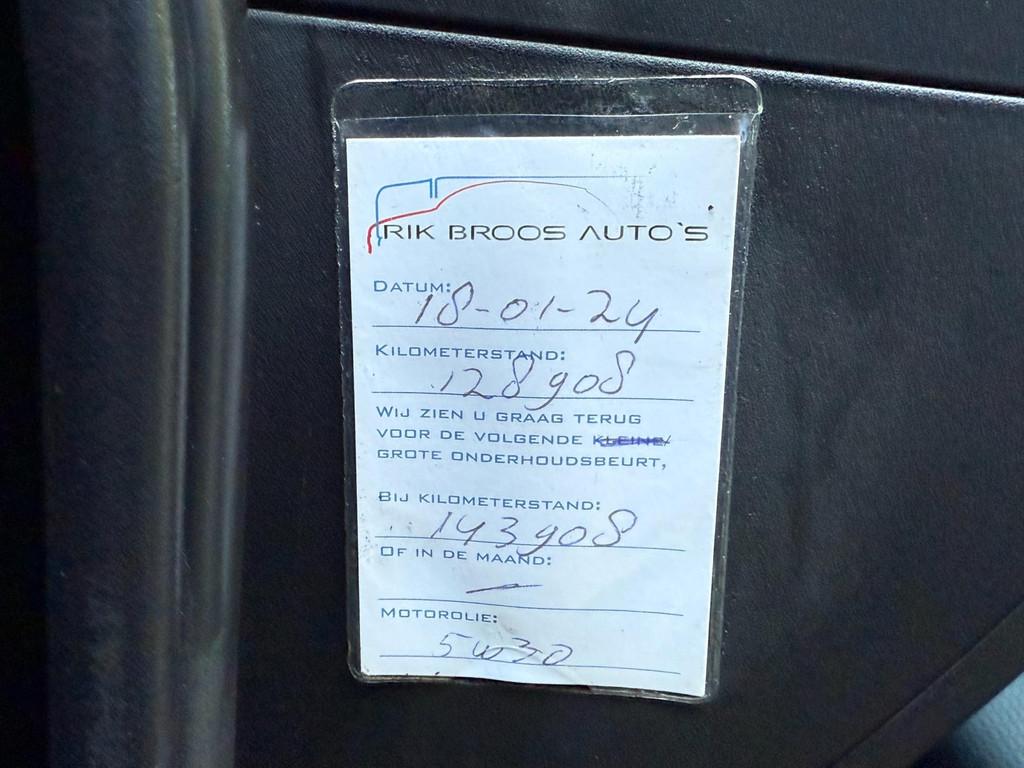 RIK BROOS AUTO`S
DATUM: 18-01-24
KILOMETERSTAND:
128908
WIJ ZIEN U GRAAG TERUG
VOOR DE VOLGENDE KLEINE/
GROTE ONDERHOUDSBEURT,
BIJ KILOMETERSTAND:
143908
OF IN DE MAAND:
—
MOTOROLIE:
5W30